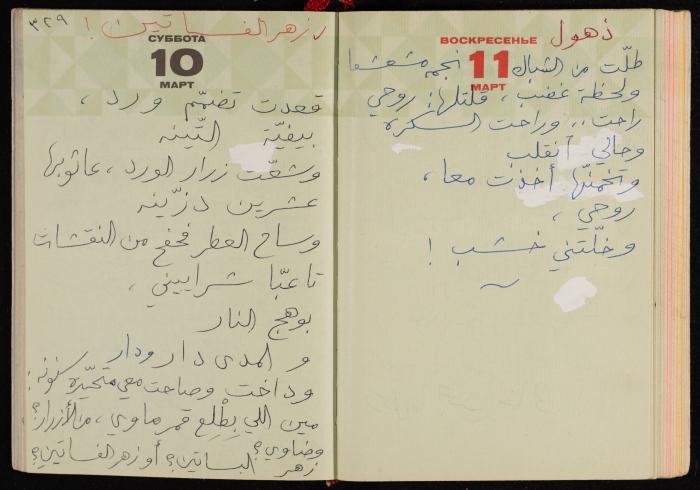 ٣٢٩
زهر الفساتين !
СУББОТА
10
МАРТ
قعدت تضمّم ورد ،
بيفيّة التّينه
وشقّت زرار الورد ، عا ثوبها
عشرين درّينه
وساح العطر فحفح من النقشات
تا عبّا شراييني ،
بوهج النار
و المدى دار ودار
وداخت وصاحت معي متحيّره سنونه :
مين اللي بِطْلِع قمر ماوي ، من الأزرار ؟
وضاوي ؟
زهر البساتين ؟ أو زهر الفساتين ؟
ВОСКРЕСЕНЬЕ
11
МАРТ
ذهول
طلّت من الشباك نجمه مشعشعا
ولحظة غضب ، قلتلها : روحي
راحت .. وراحت السكره
وحالي أنقلب
وتخمنّها أخذت معا ،
روحي ،
وخلّتني خشب !